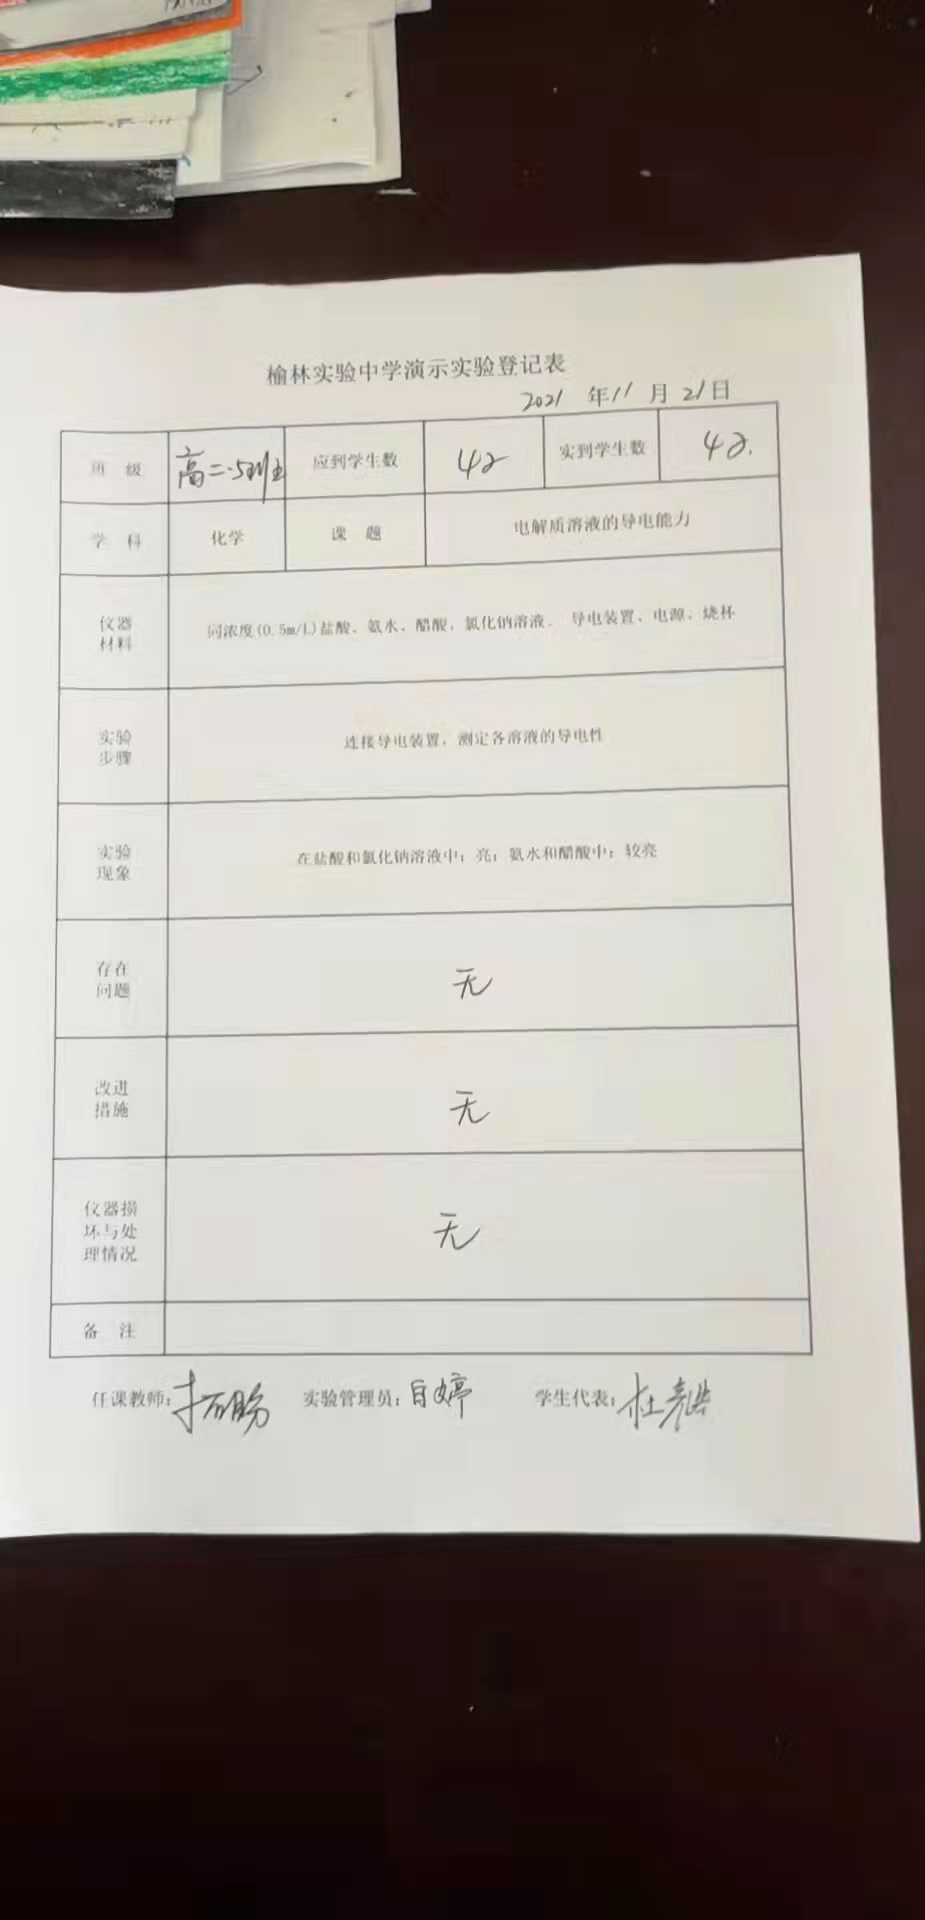 榆林实验中学演示实验登记表
2021 年 11 月 21 日
班 级 高二.5班 应到学生数 42 实到学生数 42.
学 科 化学 课 题 电解质溶液的导电能力
仪器
材料
同浓度(0.5m/L)盐酸、氨水、醋酸，氯化钠溶液． 导电装置、电源、烧杯
实验
步骤
连接导电装置，测定各溶液的导电性
实验
现象
在盐酸和氯化钠溶液中：亮；氨水和醋酸中：较亮
存在
问题
无
改进
措施
无
仪器损
坏与处
理情况
无
备 注
任课教师： 实验管理员： 学生代表：